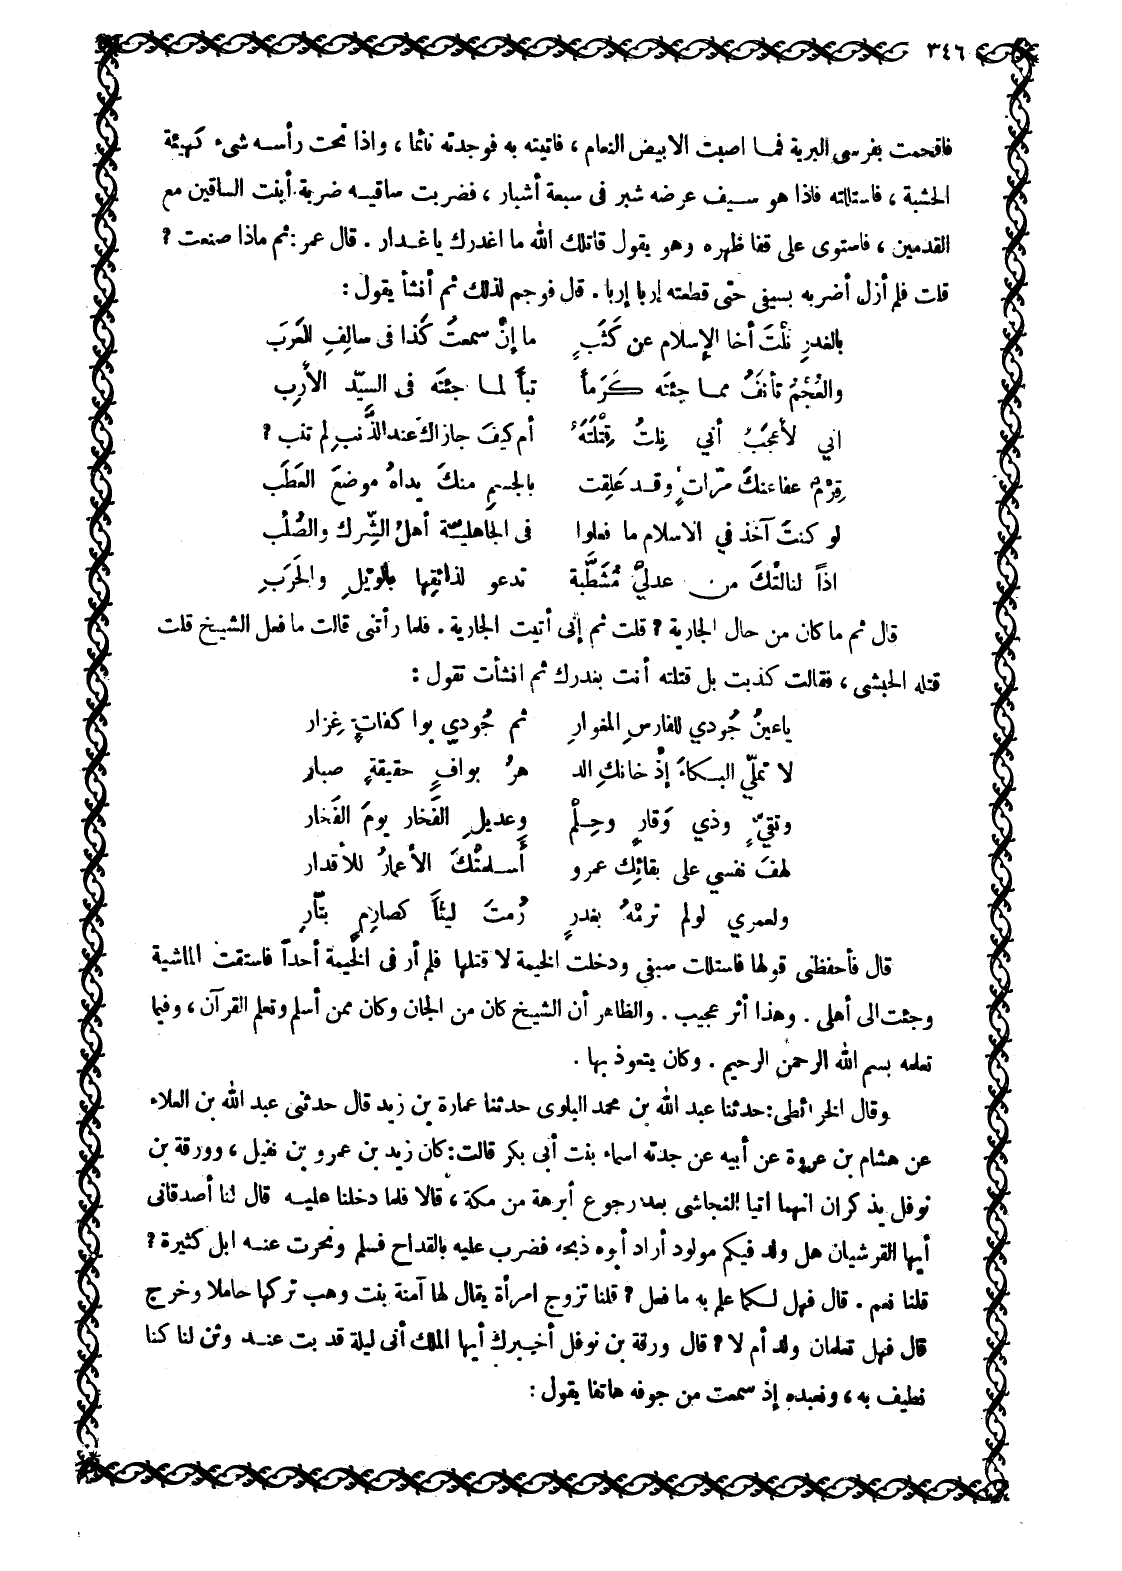 ٣٤٦
فاقحمت بفرسى البرية فما اصبت الابيض النعام ، فاتيته به فوجدته نائما ، واذا تحت رأسه شىء كهيئة
الخشبة ، فاستللته فاذا هو سيف عرضه شبر فى سبعة أشبار ، فضربت ساقيه ضربة أبنت الساقين مع
القدمين ، فاستوى على قفا ظهره وهو يقول قاتلك الله ما اغدرك ياغدار . قال عمر : ثم ماذا صنعت ؟
قلت فلم أزل أضربه بسيفى حتى قطعته إربا إربا . قال فوجم لذلك ثم أنشأ يقول :
بالغدرِ نِلْتَ أخا الإسلام عن كَثَبٍ ما إنْ سمعتُ كَذا فى سالِفِ العَرَبَ
والعُجْمُ تأنَفُ مما جئتَه كَرَماً تباً لما جئتَه فى السيّدِ الأَرِبِ
انى لأعجَبُ أنى نِلتُ قِتْلَتَهُ أم كيفَ جازاكَ عند الذَّنبِ لم تنب ؟
قِرْمٌ عفا عنكَ مرّاتٍ وقد عَلِقت بالجسمِ منكَ يداهُ موضعَ العَطَبِ
لو كنتَ آخذ في الاسلام ما فعلوا فى الجاهليةِ أهلُ الشِّركِ والصُّلْب
اذاً لنالَتْكَ من عدلى مُشَطِّبة تدعو لذائقِها بالويْلِ والحَرَبِ
قال ثم ما كان من حال الجارية ؟ قلت ثم إنى أتيت الجارية . فلما رأتنى قالت ما فعل الشيخ قلت
قتله الحبشى ، فقالت كذبت بل قتلته أنت بغدرك ثم انشأت تقول :
ياعينُ جُودي للفارسِ المغوارِ ثم جُودي بوا كفاتٍ غِزار
لا تملّي البكاءَ إذْ خانكِ الد هرُ بوافٍ حقيقةٍ صبارِ
وتقيٍّ وذي وَقارٍ وحِلْمٍ وعديلِ الفَخار يومَ الفَخار
لهفَ نفسي على بقائِك عمرو أسلمتْكَ الأعمارُ للأقدار
ولعمري لولم ترمْهُ بغدرٍ رُمتَ ليثاً كصارِمٍ بتّارِ
قال فأحفظنى قولها فاستللت سيفى ودخلت الخيمة لا قتلها فلم أر فى الخيمة أحداً فاستقت الماشية
وجئت الى أهلى . وهذا أثر عجيب . والظاهر أن الشيخ كان من الجان وكان ممن أسلم وتعلم القرآن ، وفيما
تعلمه بسم الله الرحمن الرحيم . وكان يتعوذ بها .
وقال الخرائطى : حدثنا عبد الله بن محمد البلوى حدثنا عمارة بن زيد قال حدثنى عبد الله بن العلاء
عن هشام بن عروة عن أبيه عن جدته اسماء بنت أبى بكر قالت : كان زيد بن عمرو بن نفيل ، وورقة بن
نوفل يذكران انهما اتيا النجاشى بعد رجوع أبرهة من مكة ، قالا فلما دخلنا عليه قال لنا أصدقانى
أيها القرشيان هل ولد فيكم مولود أراد أبوه ذبحه فضرب عليه بالقداح فسلم ونحرت عنه ابل كثيرة ؟
قلنا نعم . قال فهل لكما علم به ما فعل ؟ قلنا تزوج امرأة يقال لها آمنة بنت وهب تركها حاملا وخرج
قال فهل تعلمان ولد أم لا ؟ قال ورقة بن نوفل أخبرك أيها الملك أنى ليلة قد بت عند وثن لنا كنا
نطيف به ، ونعبده إذ سمعت من جوفه هاتفا يقول :